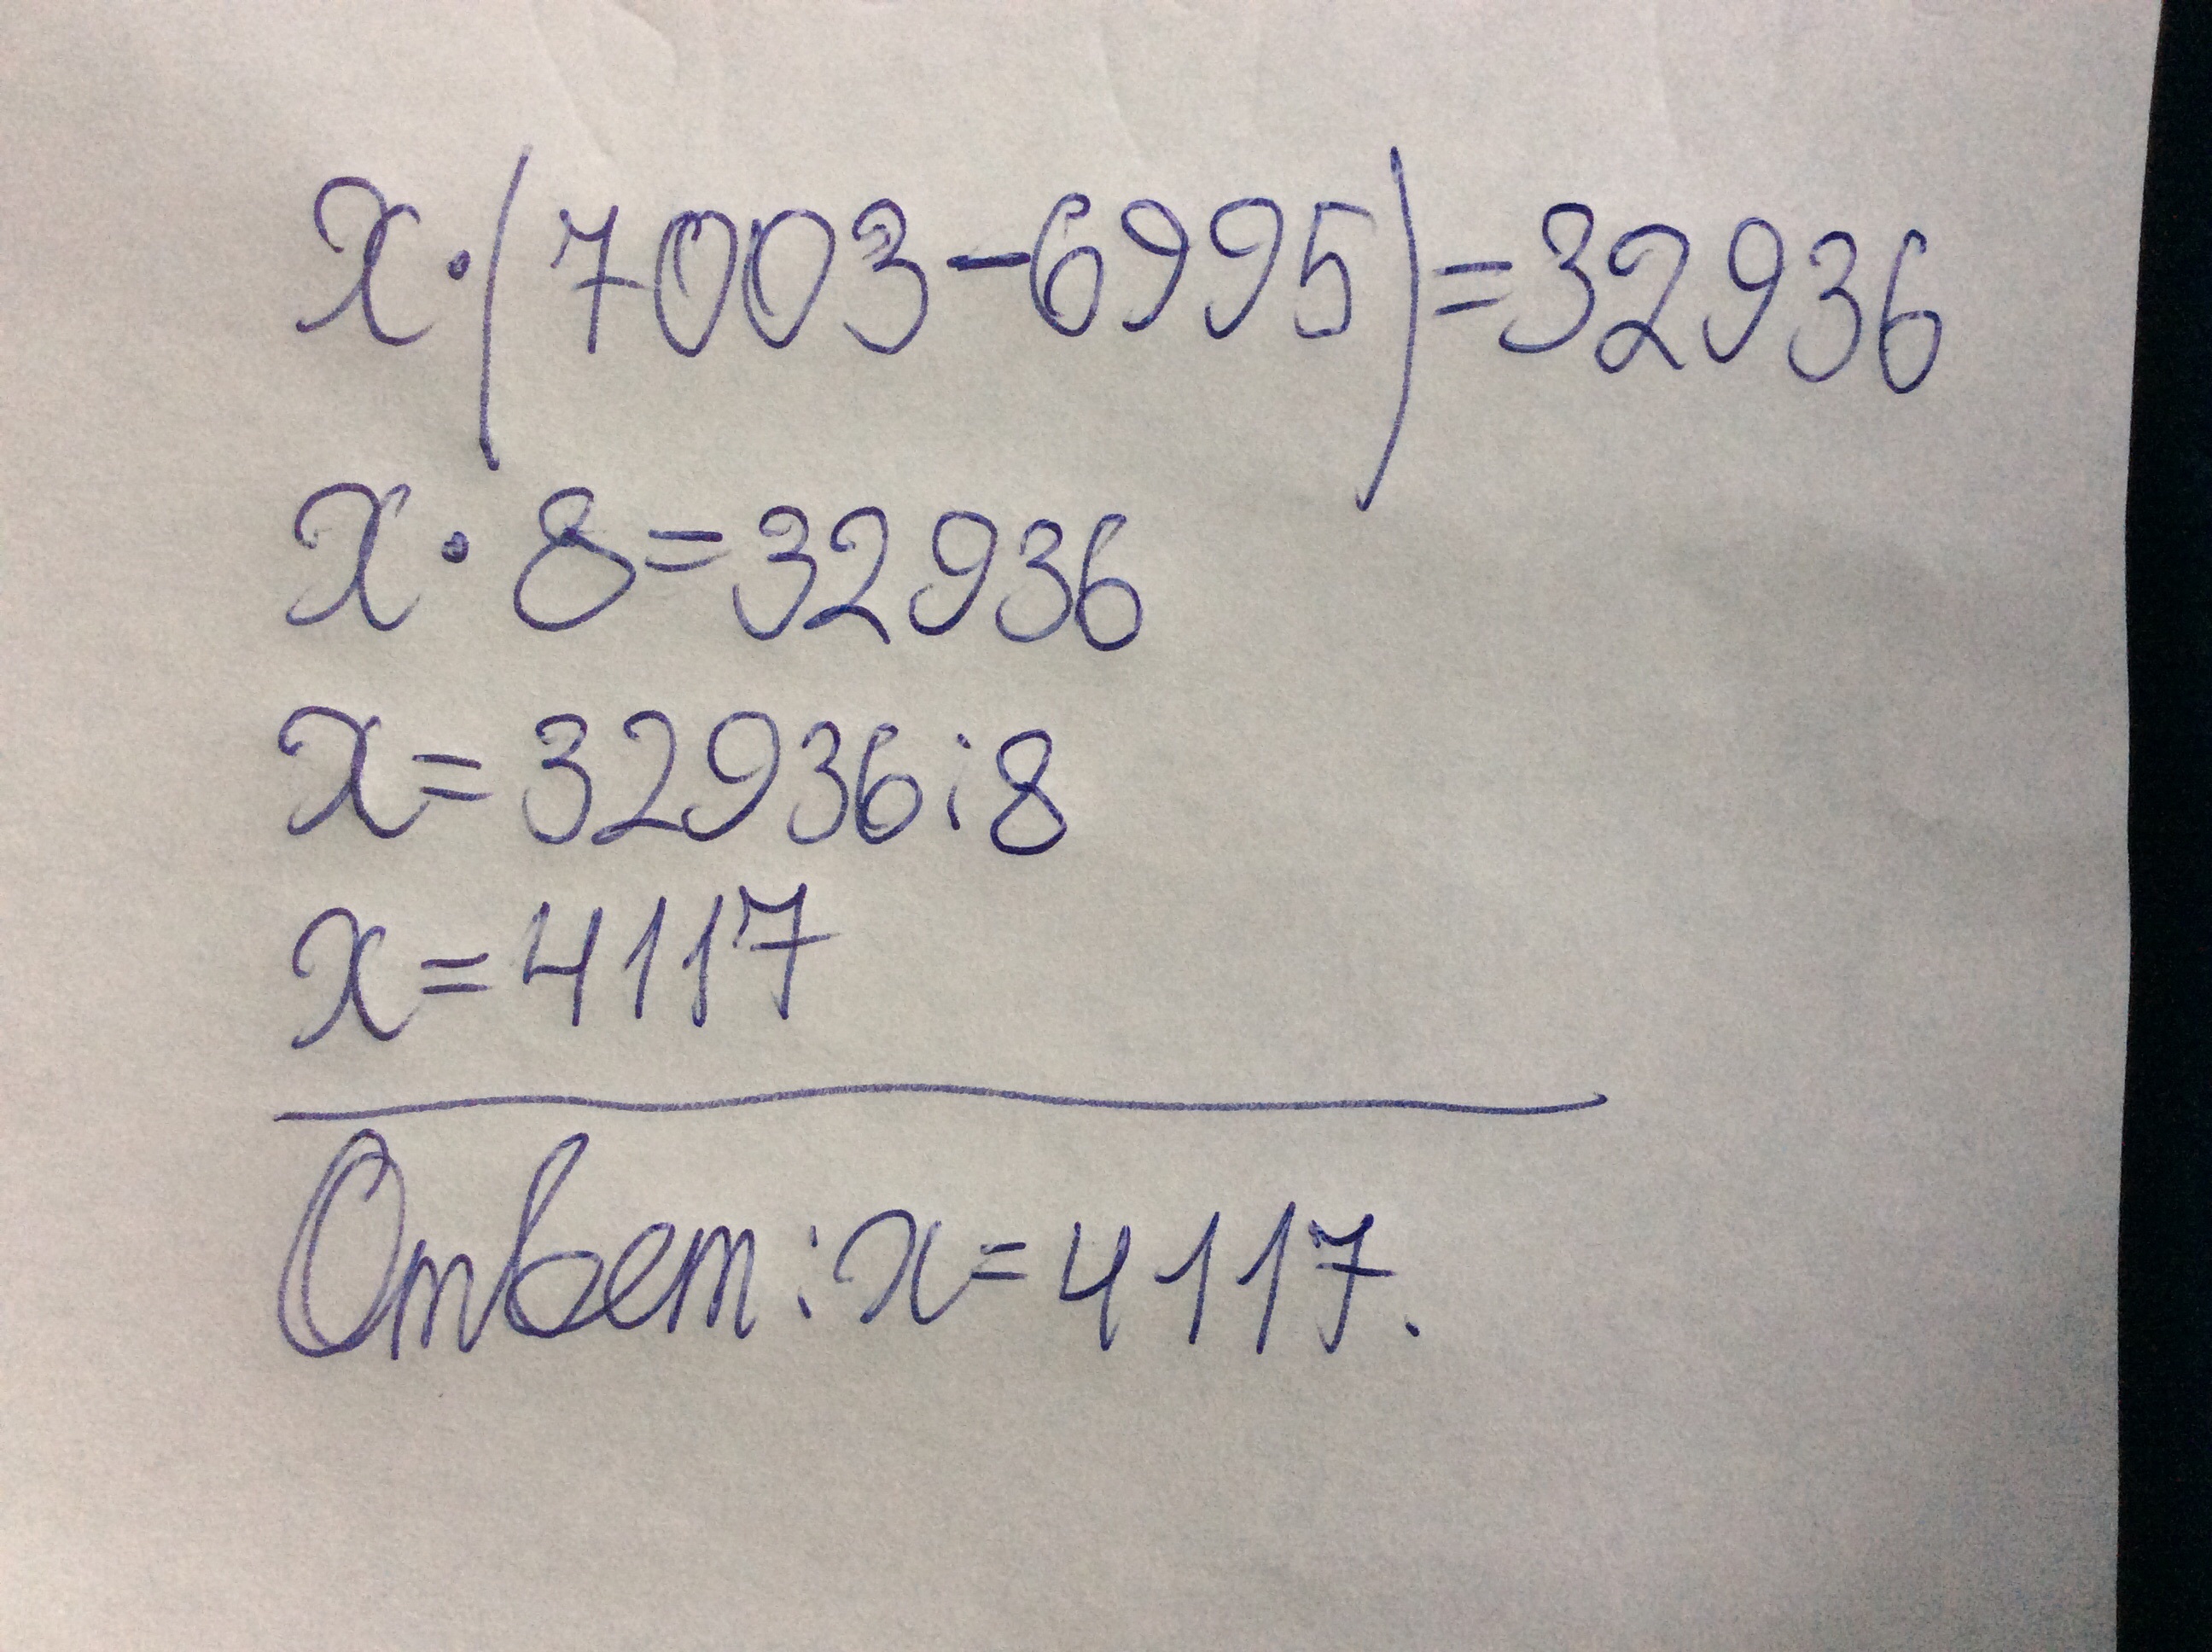 x·(7003-6995)=32936
x·8=32936
x=32936:8
x=4117
Ответ: x=4117.